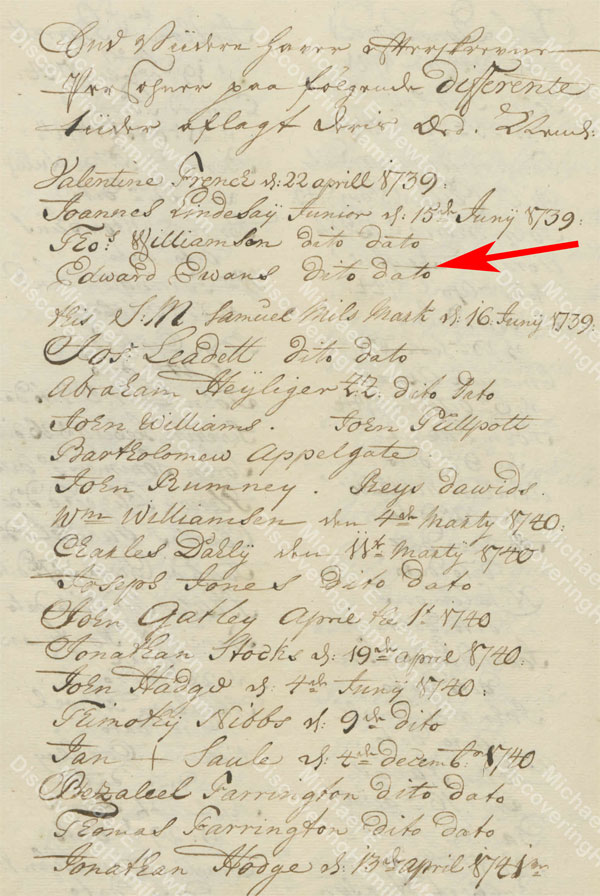 End Viidere haver efterskrevne
Personer paa følgende differente
tiider aflagt deris Eed.
Valentine French d: 22 aprill 1739:
Joannes Lindesaÿ Junior d: 15de Junÿ 1739:
Thos Williamsen dito dato
Edward Ewans dito dato
this S:M Samuel Mils Mark d: 16 Junÿ 1739:
Jos: Leadett dito dato
Abraham Heÿliger ZZ. dito dato
John Williams. John Püllpott
Bartholomew Appelgate.
John Rumney. Reys dawids.
Wm Williamsen den 4de Marty 1740:
Charles Daelÿ den 11te Martÿ 1740
Joseph Jones dito dato
John Gatley April the 1t 1740
Jonathan Stocks d: 19de april 1740:
John Hadge d: 4de Junÿ 1740:
Thimothÿ Nibbs d: 9de dito
Jan + Saule d: 4de decembr 1740
Bezaleel Farrington dito dato
Thomas Farrington dito dato
Jonathan Hodge d: 13de april 1741